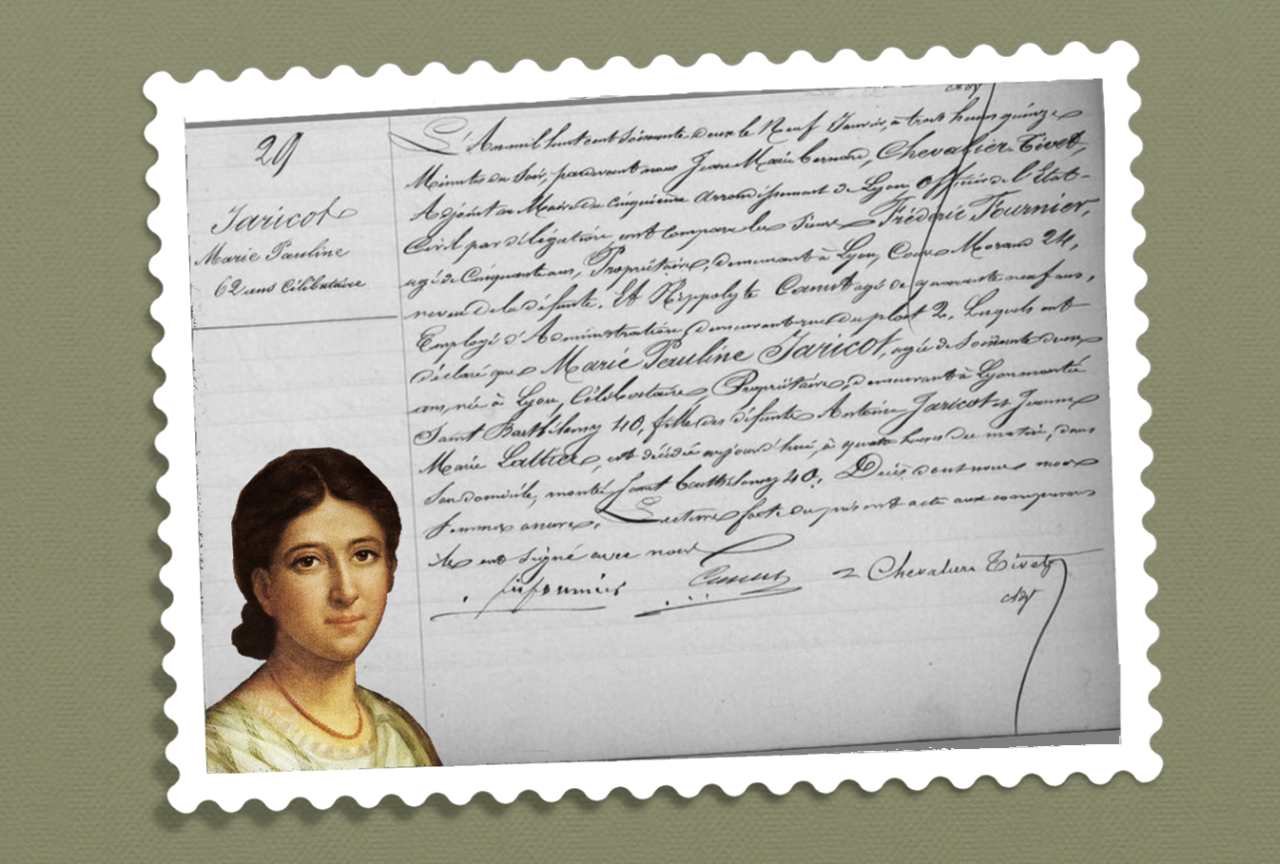 29
Jaricot
Marie Pauline
62 ans Célibataire
Ady
L'An mil huit cent soixante deux le Neuf Janvier, à trois heures quinze
Minutes du Soir, pardevant nous Jean Marie Bernard, Chevalier Tivet,
Adjoint au Maire du cinquième arrondissement de Lyon, officier de l'Etat-
Civil par délégation ont comparu les Sieurs Frédéric Fournier,
agé de Cinquante ans, Propriétaire, demeurant à Lyon, Cours Morand 24,
neveu de la défunte. Et Hippolyte Canut agé de quarante neuf ans,
Employé d'Administration, demeurant rue du plat 2. Lesquels ont
déclaré que Marie Pauline Jaricot, agée de Soixante deux
ans, née à Lyon, Célibataire, Propriétaire, demeurant à Lyon montée
Saint Barthélemy 40, fille des défunts Antoine Jaricot et Jeanne
Marie Lattier, est décédée aujourd'hui, à quatre heures du matin, dans
son domicile, montée Saint Barthélemy 40. Décès dont nous nous
sommes assurés. Lecture faite du présent acte aux comparans
ils ont signé avec nous
Canut
Chevalier Tivet
Ady